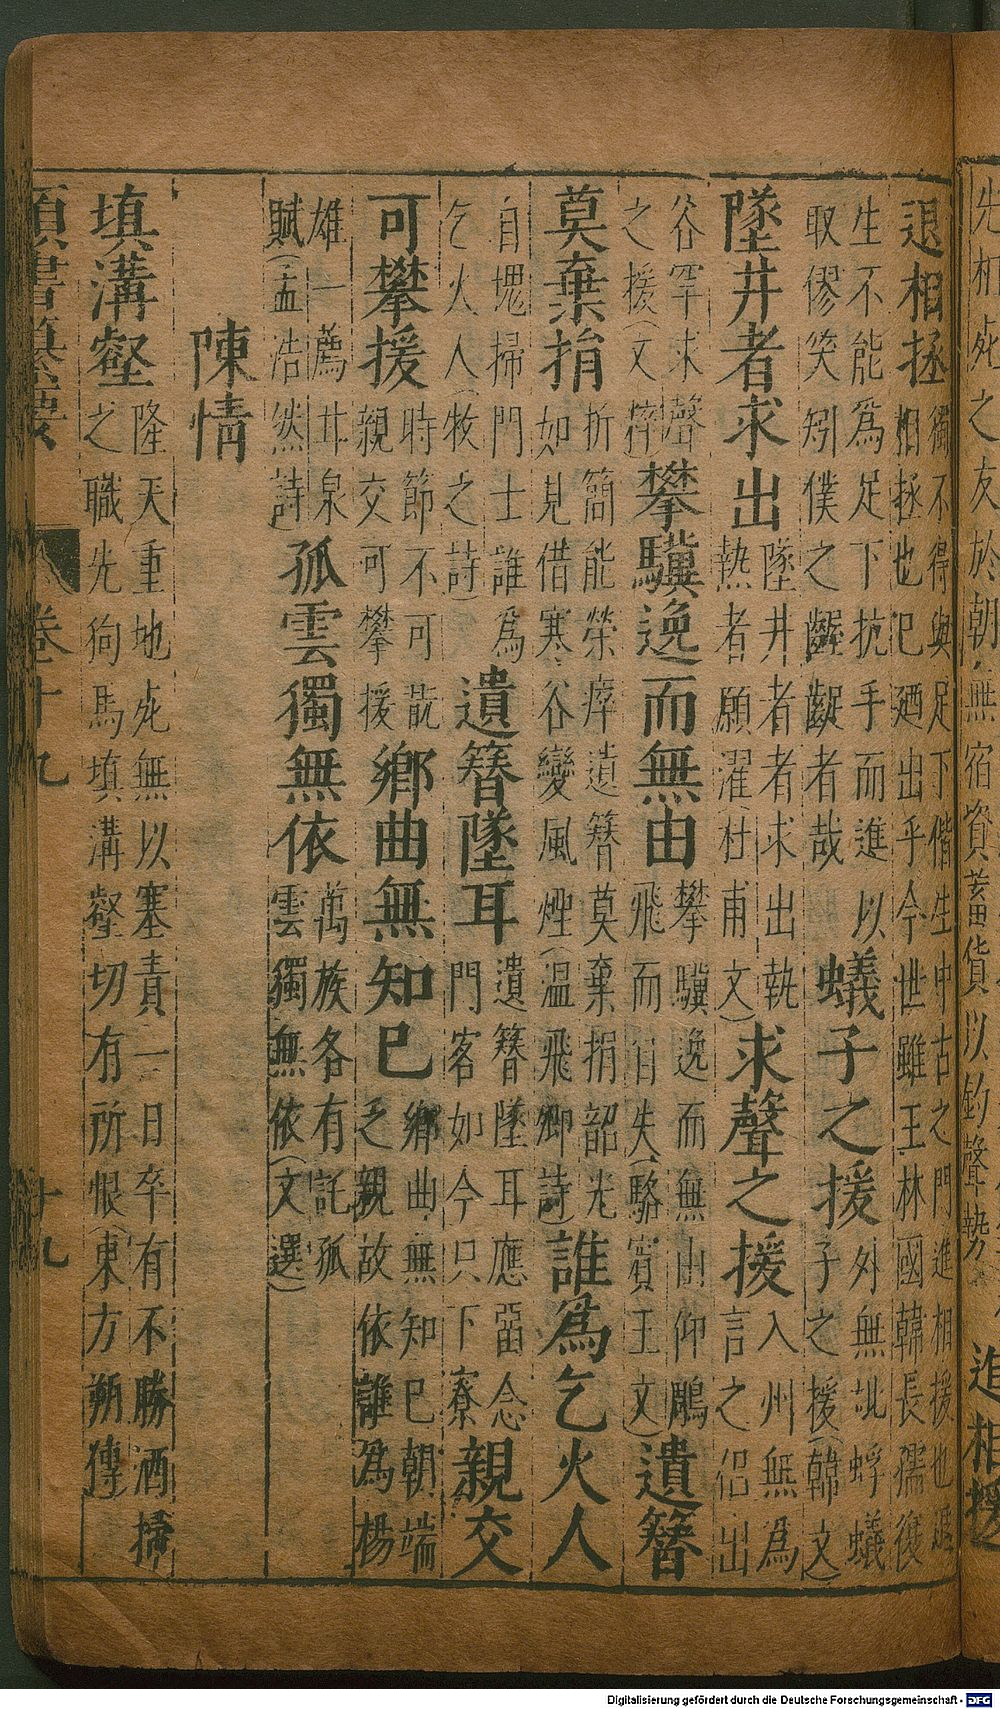 先相死之友於朝無宿資蓄貨以釣聲勢
進相援
退相拯
獨不得與足下偕生中古之門進相援也退
相拯也已廼出乎今世雖王林國韓長孺復
生不能為足下抗手而進以
取僇笑矧僕之齷齪者哉
蟻子之援
外無蚍蜉蟻
子之援(韓文)
墜井者求出
墜井者者求出執
熱者願濯(杜甫文)
求聲之援
入州無為
言之侣出
谷罕求聲
之援(文粹)
攀驥逸而無由
攀驥逸而無由仰鵰
飛而自失(駱賓王文)
遺簪
莫棄捐
折簡能榮瘁遺簪莫棄捐韶光
如見借寒谷變風煙(温飛卿詩)
誰為乞火人
自媿掃門士誰為
乞火人(牧之詩)
遺簪墜耳
遺簪墜耳應留念
門客如今只下寮
親交
可攀援
時節不可翫
親交可攀援
鄉曲無知己
鄉曲無知己朝端
乏親故依誰為楊
雄一薦甘泉
賦(孟浩然詩)
孤雲獨無依
萬族各有託孤
雲獨無依(文選)
陳情
填溝壑
隆天重地死無以塞責一日卒有不勝洒掃
之職先狗馬填溝壑切有所恨(東方朔傳)
類書纂要
卷十九
十九
Digitalisierung gefördert durch die Deutsche Forschungsgemeinschaft - DFG